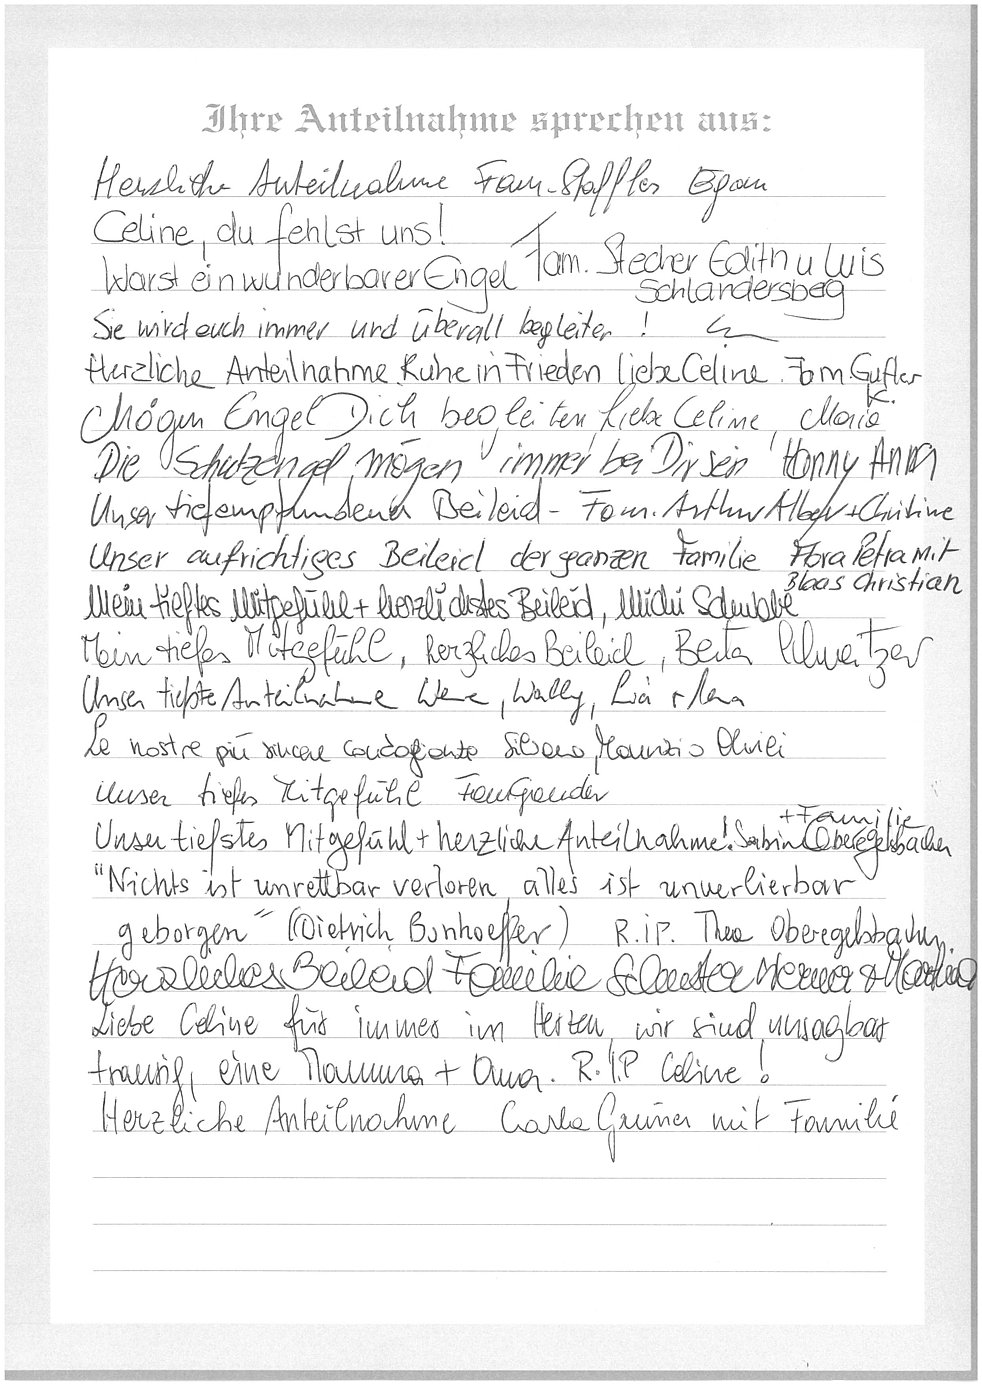 Ihre Anteilnahme sprechen aus:
Herzliche Anteilnahme Fam. Staffler Egon
Celine, du fehlst uns!
Warst ein wunderbarer Engel Fam. Stecher Edith u Luis
Schlandersberg
Sie wird euch immer und überall begleiten !
Herzliche Anteilnahme. Ruhe in Frieden liebe Celine. Fam. Gufler K.
Mögen Engel Dich begleiten, liebe Celine, Maria
Die Schutzengel mögen immer bei Dir sein Hanny Anna
Unser tiefempfundenes Beileid - Fam. Arthur Alber + Christine
Unser aufrichtiges Beileid der ganzen Familie Flora Petra mit
Blaas Christian
Mein tieftes Mitgefühl + herzlichstes Beileid, Michi
Mein tiefes Mitgefühl, herzliches Beileid, Berta
Unser tiefste Anteilnahme Wally, Lia +
Le nostre più sincere condoglianze Silvano, Maurizio Olivieri
Unser tiefes Mitgefühl Fam
Unser tiefstes Mitgefühl + herzliche Anteilnahme! Sabine Oberegelsbacher
+ Familie
"Nichts ist unrettbar verloren, alles ist unverlierbar
geborgen" (Dietrich Bonhoeffer) R.iP. Thea Oberegelsbacher
Herzliches Beileid Familie Schuster Werner + Martina
Liebe Celine für immer im Herzen, wir sind unsagbar
traurig, eine Mamma + Oma. R.I.P Celine!
Herzliche Anteilnahme Carla Grüner mit Familie